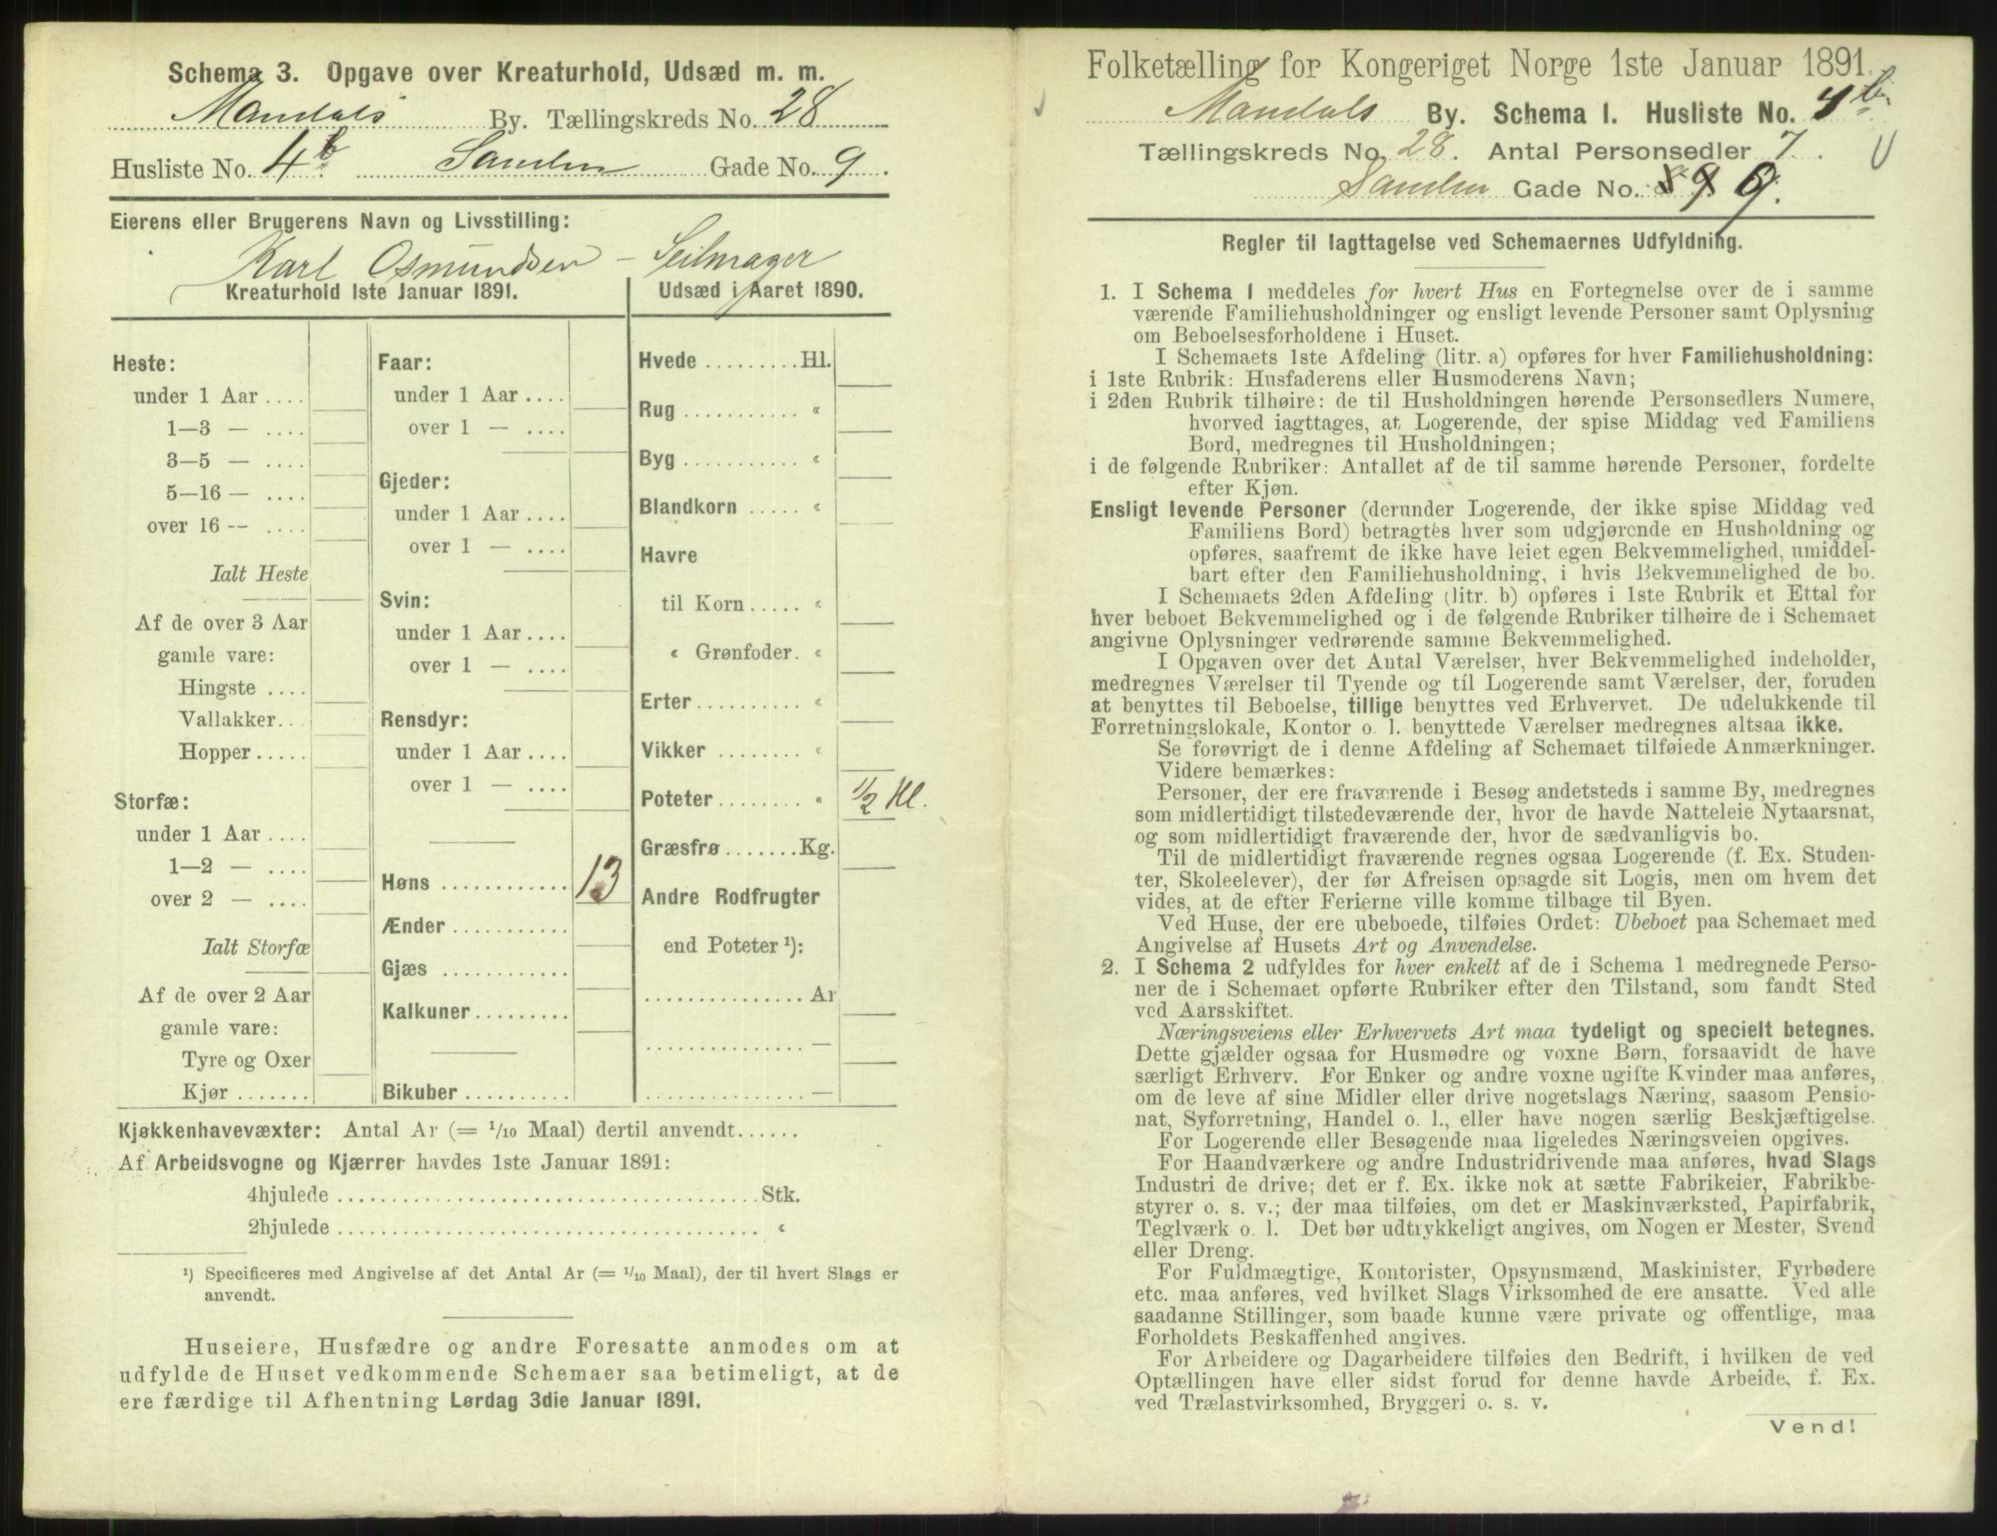 Schema 3. Opgave over Kreaturhold, Udsæd m. m.
Mandals By. Tællingskreds No. 28
Husliste No. 4b Sanden Gade No. 9.
Eierens eller Brugerens Navn og Livsstilling:
Karl Osmundsen - Seilmager
Kreaturhold 1ste Januar 1891.
Heste:
under 1 Aar ....
1—3 — ....
3—5 — ....
5—16 — ....
over 16 -- ....
Ialt Heste
Af de over 3 Aar
gamle vare:
Hingste ....
Vallakker...
Hopper ......
Storfæ:
under 1 Aar ....
1—2 — ....
over 2 — ....
Ialt Storfæ
Af de over 2 Aar
gamle vare:
Tyre og Oxer
Kjør .......
Faar:
under 1 Aar ....
over 1 — ....
Gjeder:
under 1 Aar ....
over 1 — ....
Svin:
under 1 Aar ....
over 1 — ....
Rensdyr:
under 1 Aar ....
over 1 — ....
Høns ............ 13
Ænder ...........
Gjæs ............
Kalkuner.........
Bikuber ..........
Udsæd i Aaret 1890.
Hvede ......... Hl.
Rug ........... «
Byg ........... «
Blandkorn ..... «
Havre
til Korn ..... «
« Grønfoder. «
Erter .......... «
Vikker ........ «
Poteter ........ « 1/2 Hl.
Græsfrø ....... Kg.
Andre Rodfrugter
end Poteter ¹):
............... Ar
............... —
............... —
Kjøkkenhavevæxter: Antal Ar (= 1/10 Maal) dertil anvendt......
Af Arbeidsvogne og Kjærrer havdes 1ste Januar 1891:
4hjulede ..................................... Stk.
2hjulede ..................................... «
¹) Specificeres med Angivelse af det Antal Ar (= 1/10 Maal), der til hvert Slags er
anvendt.
Huseiere, Husfædre og andre Foresatte anmodes om at
udfylde de Huset vedkommende Schemaer saa betimeligt, at de
ere færdige til Afhentning Lørdag 3die Januar 1891.
Folketælling for Kongeriget Norge 1ste Januar 1891.
Mandals By. Schema 1. Husliste No. 4b
Tællingskreds No. 28. Antal Personsedler 7.
Sanden Gade No. 9.
Regler til Iagttagelse ved Schemaernes Udfyldning.
1. I Schema 1 meddeles for hvert Hus en Fortegnelse over de i samme
værende Familiehusholdninger og ensligt levende Personer samt Oplysning
om Beboelsesforholdene i Huset.
I Schemaets 1ste Afdeling (litr. a) opføres for hver Familiehusholdning:
i 1ste Rubrik: Husfaderens eller Husmoderens Navn;
i 2den Rubrik tilhøire: de til Husholdningen hørende Personsedlers Numere,
hvorved iagttages, at Logerende, der spise Middag ved Familiens
Bord, medregnes til Husholdningen;
i de følgende Rubriker: Antallet af de til samme hørende Personer, fordelte
efter Kjøn.
Ensligt levende Personer (derunder Logerende, der ikke spise Middag ved
Familiens Bord) betragtes hver som udgjørende en Husholdning og
opføres, saafremt de ikke have leiet egen Bekvemmelighed, umiddel-
bart efter den Familiehusholdning, i hvis Bekvemmelighed de bo.
I Schemaets 2den Afdeling (litr. b) opføres i 1ste Rubrik et Ettal for
hver beboet Bekvemmelighed og i de følgende Rubriker tilhøire de i Schemaet
angivne Oplysninger vedrørende samme Bekvemmelighed.
I Opgaven over det Antal Værelser, hver Bekvemmelighed indeholder,
medregnes Værelser til Tyende og til Logerende samt Værelser, der, foruden
at benyttes til Beboelse, tillige benyttes ved Erhvervet. De udelukkende til
Forretningslokale, Kontor o. l. benyttede Værelser medregnes altsaa ikke.
Se forøvrigt de i denne Afdeling af Schemaet tilføiede Anmærkninger.
Videre bemærkes:
Personer, der ere fraværende i Besøg andetsteds i samme By, medregnes
som midlertidigt tilstedeværende der, hvor de havde Natteleie Nytaarsnat,
og som midlertidigt fraværende der, hvor de sædvanligvis bo.
Til de midlertidigt fraværende regnes ogsaa Logerende (f. Ex. Studen-
ter, Skoleelever), der før Afreisen opsagde sit Logis, men om hvem det
vides, at de efter Ferierne ville komme tilbage til Byen.
Ved Huse, der ere ubeboede, tilføies Ordet: Ubeboet paa Schemaet med
Angivelse af Husets Art og Anvendelse.
2. I Schema 2 udfyldes for hver enkelt af de i Schema 1 medregnede Perso-
ner de i Schemaet opførte Rubriker efter den Tilstand, som fandt Sted
ved Aarsskiftet.
Næringsveiens eller Erhvervets Art maa tydeligt og specielt betegnes.
Dette gjælder ogsaa for Husmødre og voxne Børn, forsaavidt de have
særligt Erhverv. For Enker og andre voxne ugifte Kvinder maa anføres,
om de leve af sine Midler eller drive nogetslags Næring, saasom Pensio-
nat, Syforretning, Handel o. l., eller have nogen særlig Beskjæftigelse.
For Logerende eller Besøgende maa ligeledes Næringsveien opgives.
For Haandværkere og andre Industridrivende maa anføres, hvad Slags
Industri de drive; det er f. Ex. ikke nok at sætte Fabrikeier, Fabrikbe-
styrer o. s. v.; der maa tilføies, om det er Maskinværksted, Papirfabrik,
Teglværk o. l. Det bør udtrykkeligt angives, om Nogen er Mester, Svend
eller Dreng.
For Fuldmægtige, Kontorister, Opsynsmænd, Maskinister, Fyrbødere
etc. maa anføres, ved hvilket Slags Virksomhed de ere ansatte. Ved alle
saadanne Stillinger, som baade kunne være private og offentlige, maa
Forholdets Beskaffenhed angives.
For Arbeidere og Dagarbeidere tilføies den Bedrift, i hvilken de ved
Optællingen have eller sidst forud for denne havde Arbeide, f. Ex.
ved Trælastvirksomhed, Bryggeri o. s. v.
Vend!